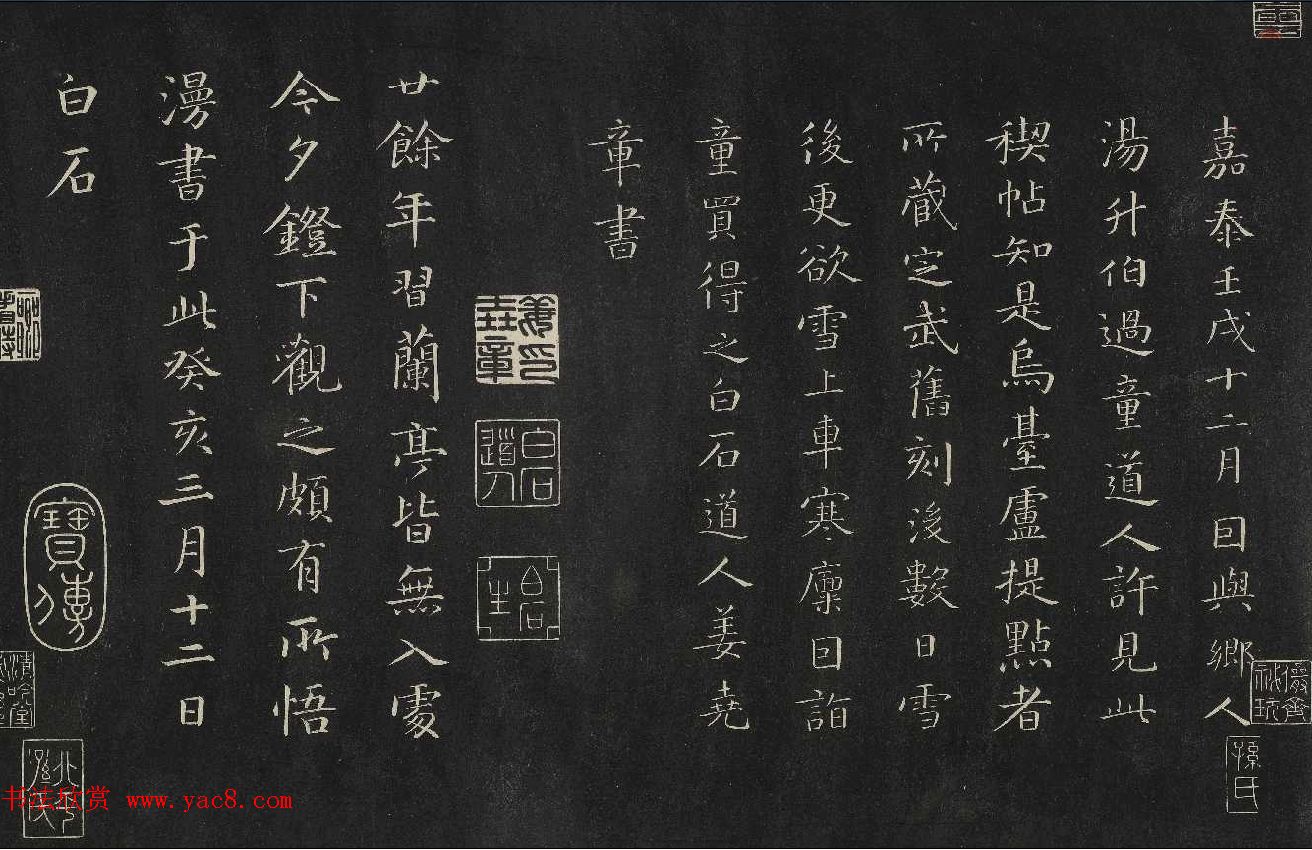 嘉泰壬戌十二月因與鄉人
湯升伯過童道人許見此
禊帖知是烏臺盧提點者
所蔵定武舊刻後數日雪
後更欲雪上車寒凜因詣
童買得之白石道人姜堯
章書
廿餘年習蘭亭皆無入處
今夕鐙下觀之頗有所悟
漫書于此癸亥三月十二日
白石
姜夔印章
白石
寶傳
清吟堂
孫氏
书法欣赏 www.yac8.com